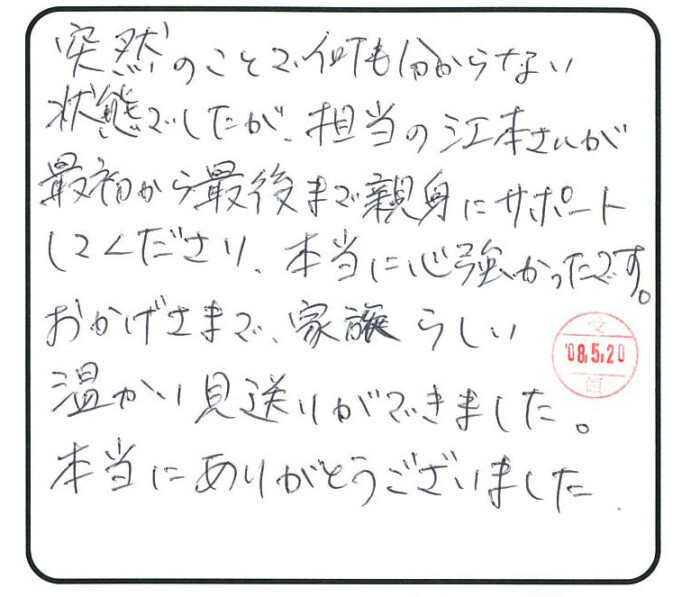 突然のことで何も分からない
状態でしたが、担当の江本さんが
最初から最後まで親身にサポート
してくださり、本当に心強かったです。
おかげさまで、家族らしい
温かい見送りができました。
本当にありがとうございました.
受
'08.5.20
領